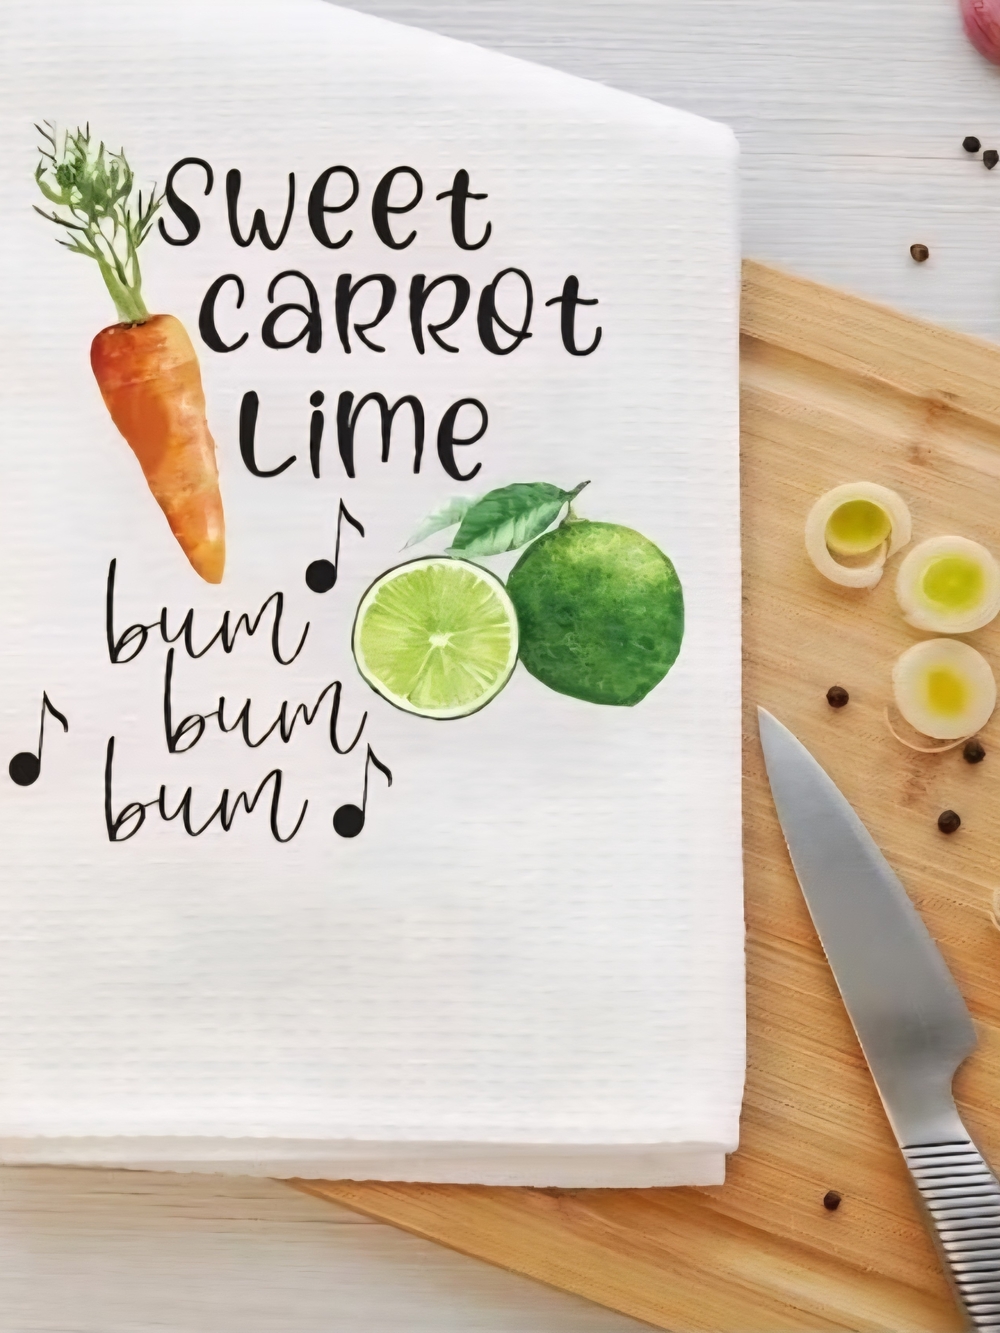 Sweet
carrot
Lime
bum
bum
bum